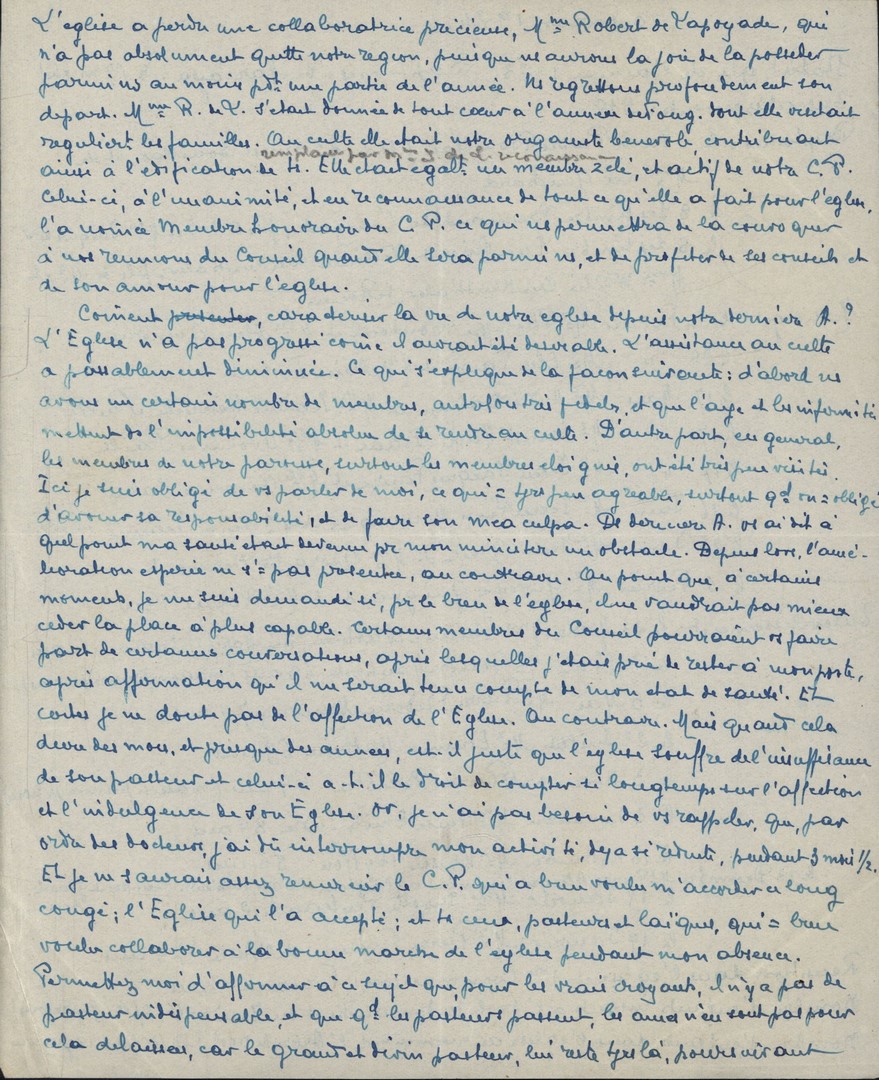 L'eglise a perdu une collaboratrice précieuse, Mme Robert de Lapoyade, qui
n'a pas absolument quitté notre region, puisque ns aurons la joie de la posseder
parmi ns au moins pdt une partie de l'année. Ns regrettons profondement son
depart. Mme R. de L. s'etait donnée de tout cœur à l'annexe de dont elle visitait
reguliert les familles. Au culte elle etait notre organiste benevole contribuant
remplacée par Mme J. de L.
ainsi à l'édification de ts. Elle etait egalt un membre zelé, et actif de notre C.P.
Celui-ci, à l'unanimité, et en reconnaissance de tout ce qu'elle a fait pour l'eglise,
l'a nom̄ée Membre honoraire du C.P. ce qui ns permettra de la convoquer
à nos reunions du Conseil quand elle sera parmi ns, et de profiter de ses conseils et
de son amour pour l'église.
Com̄ent presenter, caracteriser la vie de notre eglise depuis notre derniere A.?
L'Eglise n'a pas progressé com̄e il aurait été desirable. L'assistance au culte
a passablement diminuée. Ce qui s'explique de la façon suivante: d'abord ns
avons un certain nombre de membres, autrefois très fideles, et que l'age et les infirmités
mettent ds l'impossibilité absolue de se rendre au culte. D'autre part, en general,
les membres de notre paroisse, surtout les membres eloignés, ont été très peu visités.
Ici je suis obligé de vs parler de moi, ce qui = tjrs peu agreable, surtout qd on = obligé
d'avouer sa responsabilité, et de faire son mea culpa. Ds derniere A. vs ai dit à
quel point ma santé etait devenue pr mon ministere un obstacle. Depuis lors, l'amé-
lioration esperée ne s'= pas presentée, au contraire. Au point que, à certains
moments, je me suis demandé si, pr le bien de l'église, il ne vaudrait pas mieux
ceder la place à plus capable. Certains membres du Conseil pourraient vs faire
part de certaines conversations, après lesquelles j'étais prié de rester à mon poste,
après affirmation qu'il me serait tenu compte de mon etat de santé. Et
certes je ne doute pas de l'affection de l'Eglise. Au contraire. Mais quand cela
dure des mois, et presque des années, est-il juste que l'eglise souffre de l'insuffisance
de son pasteur et celui-ci a-t-il le droit de compter si longtemps sur l'affection
et l'indulgence de son Eglise. Or, je n'ai pas besoin de vs rappeler, que, par
ordre des docteurs, j'ai dû interrompre mon activité, deja si reduite, pendant 3 mois 1/2.
Et je ne saurais assez remercier le C.P. qui a bien voulu m'accorder ce long
congé; l'Eglise qui l'a accepté; et ts ceux, pasteurs et laïques, qui = bien
voulu collaborer à la bonne marche de l'eglise pendant mon absence.
Permettez moi d'affirmer à ce sujet que, pour les vrais croyants, il n'y a pas de
pasteur indispensable, et que qd les pasteurs passent, les ames n'en sont pas pour
cela delaissées, car le grand et divin pasteur, lui reste tjrs là, poursuivant